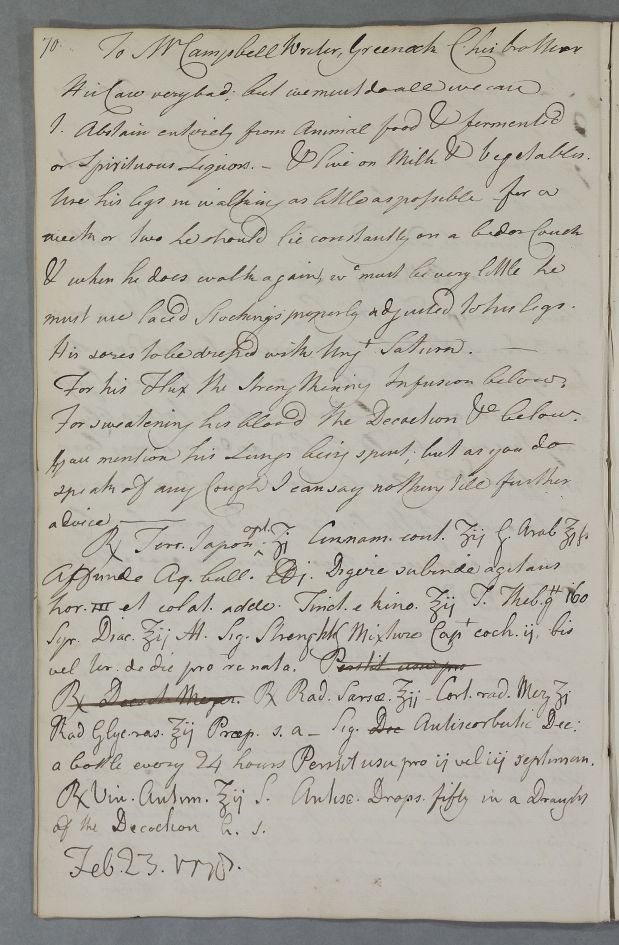 70 To Mr Campbell Writer, Greenock & his brother
His Case very bad; but we must do all we can
1. Abstain entirely from Animal food & fermented
or Spirituous Liquors. – & live on Milk & Vegetables.
Use his legs in walking as little as possible for a
week or two he should lie constantly on a bed or Couch
& when he does walk again, wc must be very little he
must use laced Stockings properly adjusted to his legs.
His sores to be dressed with Ungt Saturn. —
For his Flux the Strengthening Infusion below.
For sweetening his blood the Decoction &c below.
You mention his Lungs being spent; but as you do
speak of any Cough I can say nothing till further
advice
℞ Terr. Japon. opt. ʒi Cinnam. cont. ʒij G. Arab ʒiſs
Affunde Aq. bull. ℔j. Digere subinde agitans
hor. III et colat. adde Tinct. e kino. ʒij T. Theb. gtt 160
Syr. Diac. ʒij M. Sig. Strengthg Mixture Capt coch. ij. bis
vel ter. de die pro re nata. Perstit usu pro
℞ Decoct Mezer. ℞ Rad. Sarsæ. ʒij Cort. rad. Mez ʒi
Rad Glyc. ras. ʒij Præp. s. a – Sig. Dec Antiscorbutic Dec:
a bottle every 24 hours Perstit usu pro ij vel iij septiman.
℞ Vin. Antim. ʒij S. Antisc. Drops. fifty in a Draught
of the Decoction h. s.
Feb. 23. 1778.